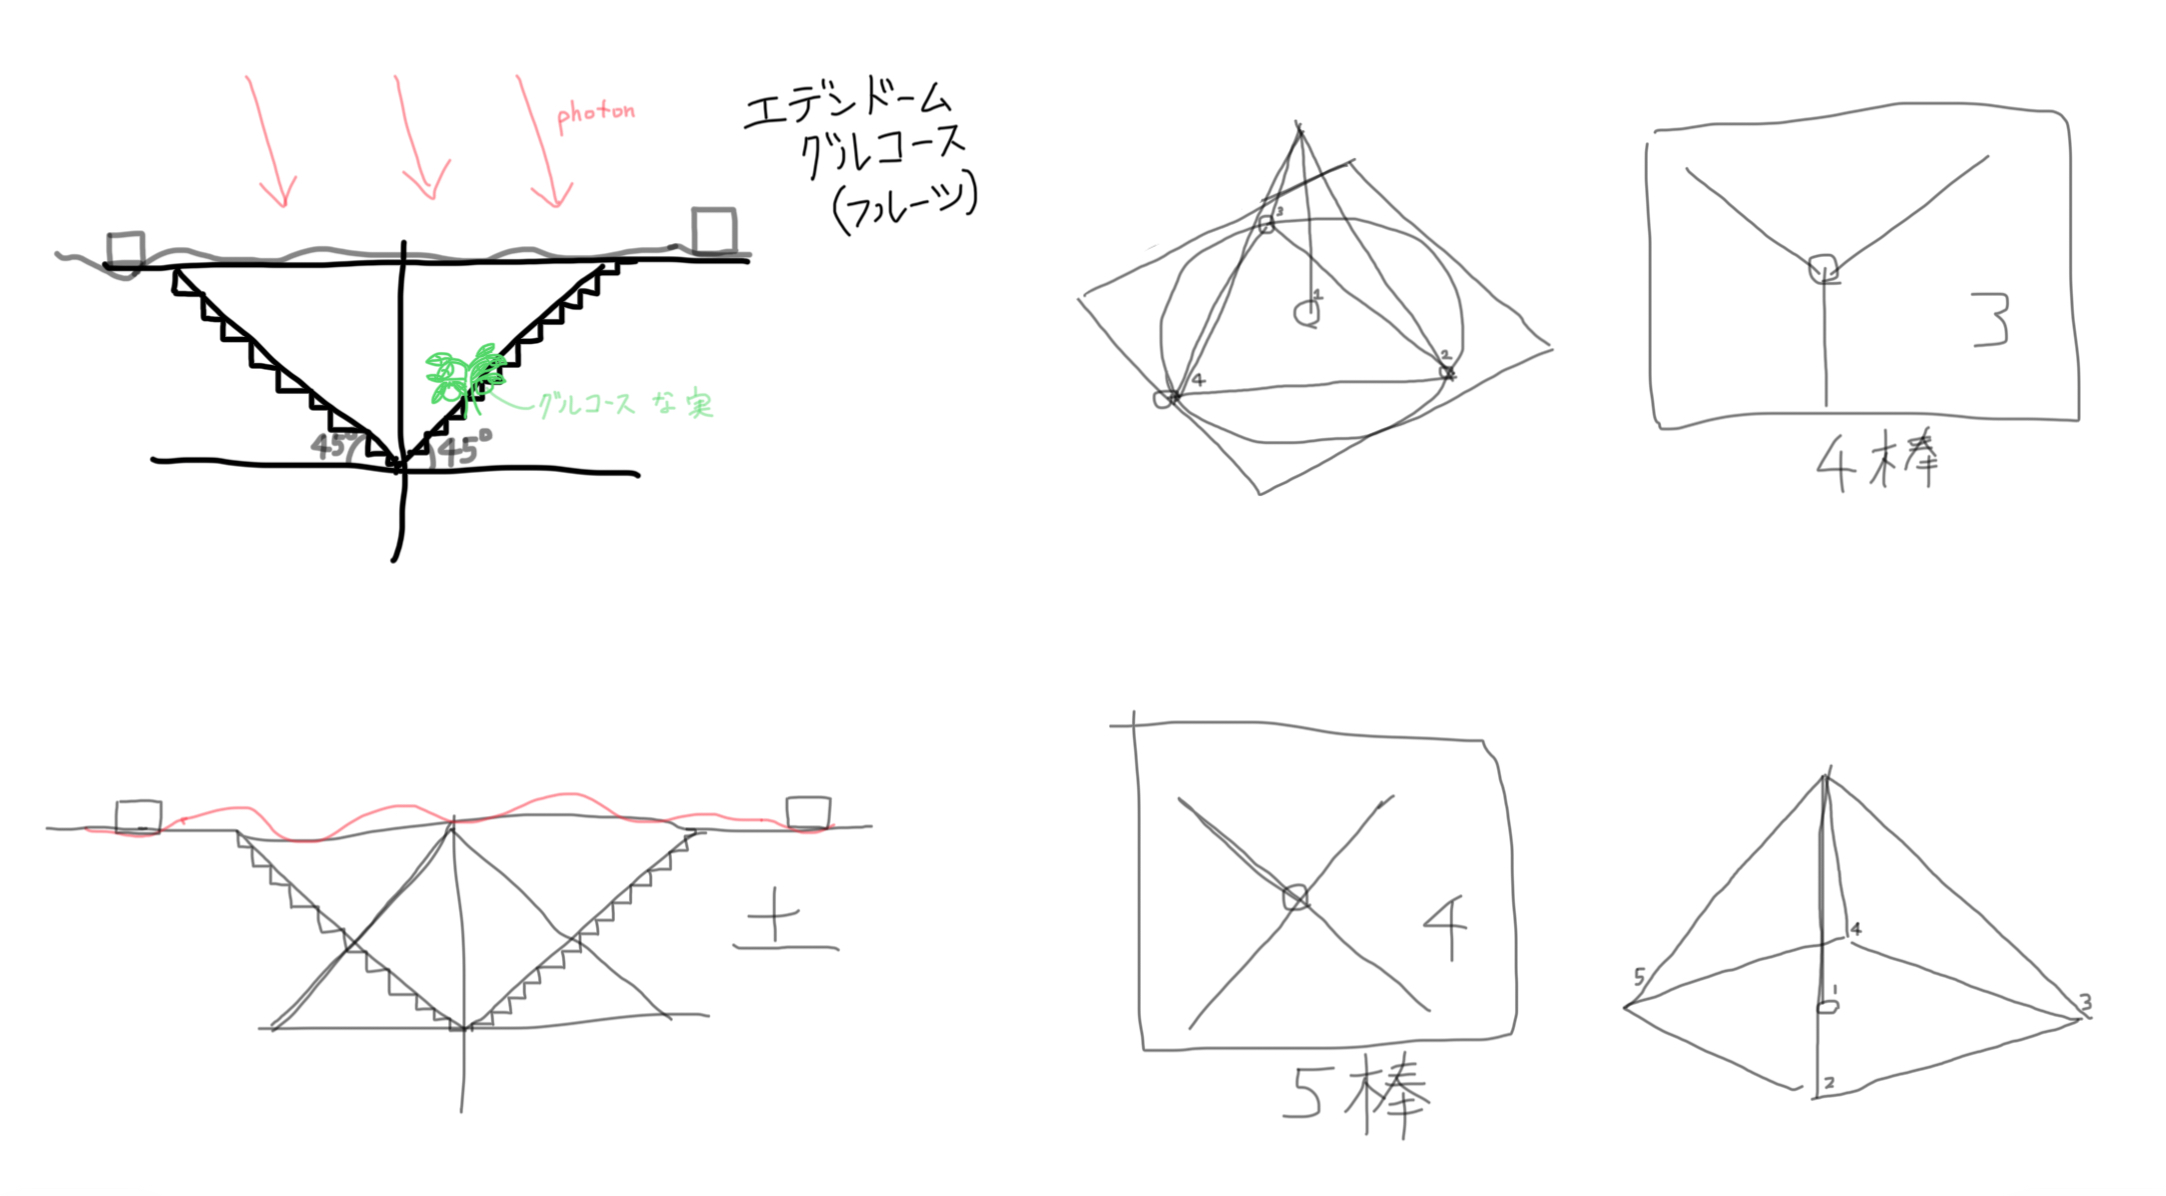 photon
エデンドーム
グルコース
(フルーツ)
グルコース な 実
45°
45°
3
1
2
4
3
4棒
土
4
5棒
5
4
1
3
2